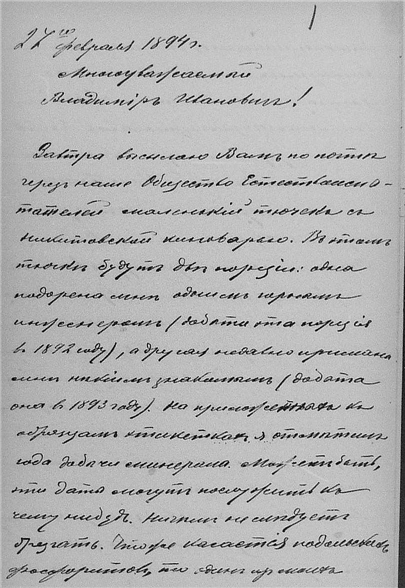 27го февраля 1894 г.
Многоуважаемый
Владимiръ Ивановичъ!
Завтра высылаю Вамъ по почтѣ
через наше Общество Естествоиспы-
тателей маленькiй тючекъ съ
никитовской киноварью. Въ этомъ
тючкѣ будутъ двѣ порцiи: одна
подарена мнѣ однимъ горнымъ
инженеромъ (добыта эта порцiя
въ 1892 году), а другая недавно прислана
мнѣ нѣкимъ знакомымъ (добыта
она в 1893 году). На приложенных къ
образцамъ этикеткахъ я отмѣтилъ
года добычи минерала. Можетъ быть,
эти даты могутъ послужить къ
чему нибудь. Ничѣмъ не слѣдуетъ
брезгать. Что же касается подольскихъ
фосфоритовъ, то одинъ из моихъ